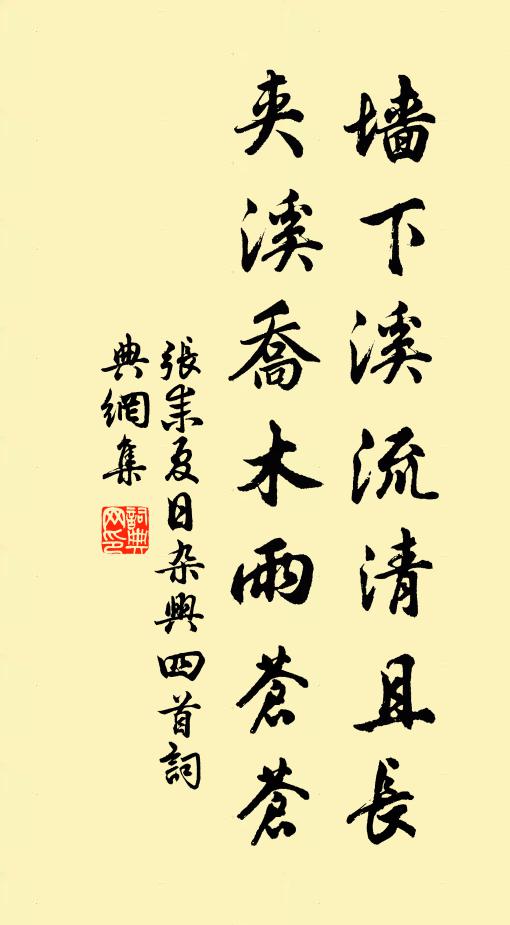 墙下溪流清且長
夹溪喬木雨蒼蒼
張耒夏日杂興四首詞
典網集
詞典网印